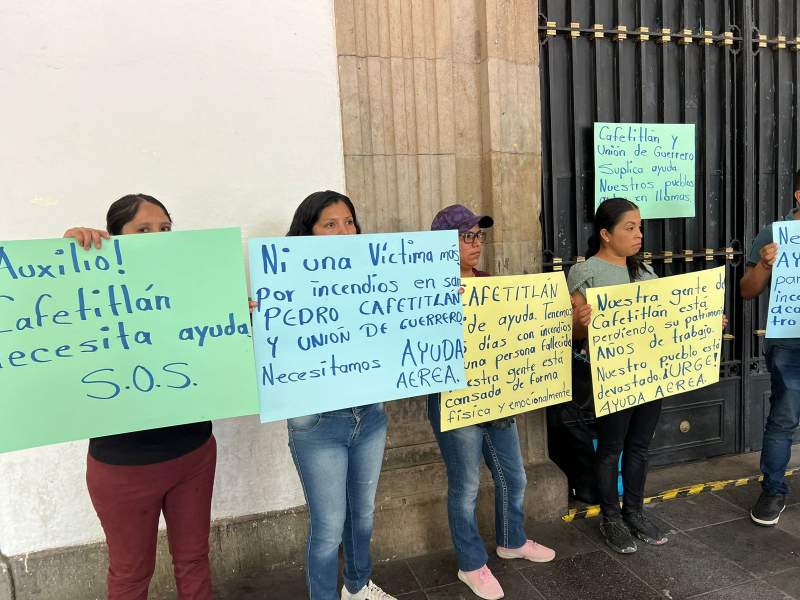 Auxilio!
Cafetitlán
necesita ayuda
S.O.S.
Ni una Víctima más
por incendios en san
PEDRO CAFETITLÁN
Y UNIÓN DE GUERRERO
Necesitamos AYUDA
AEREA.
CAFETITLÁN
de ayuda. Tenemos
días con incendios
una persona fallecida
nuestra gente está
cansada de forma
física y emocionalmente
Cafetitlán y
Unión de Guerrero
Suplica ayuda
Nuestros pueblos
en llamas.
Nuestra gente de
Cafetitlán está
perdiendo su patrimonio
AÑOS de trabajo.
Nuestro pueblo está
devastado. ¡URGE!
AYUDA AEREA.
Ne
AY
par
ince
tro